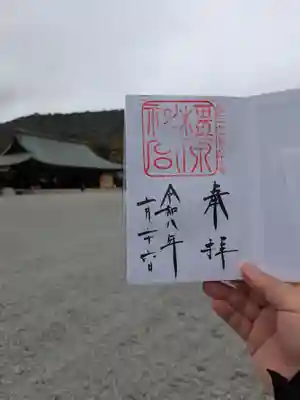 橿原
神宮
奉拝
令和八年
月十六日